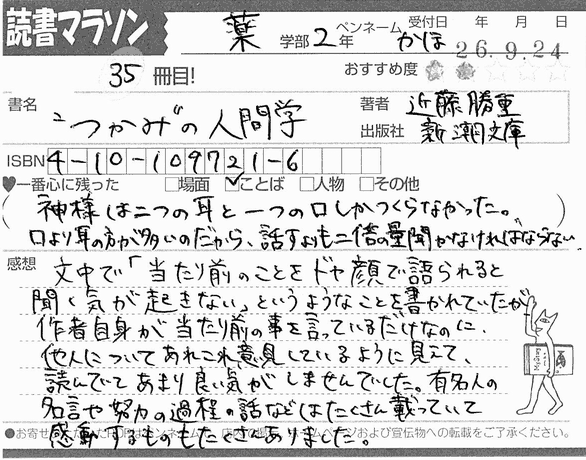 読書マラソン
薬 学部 2年 ペンネーム かほ 受付日 年 月 日
26.9.24
35 冊目! おすすめ度
書名 "つかみ"の人間学
著者 近藤勝重
出版社 新潮文庫
ISBN 4-10-109721-6
♥一番心に残った □場面 ☑ことば □人物 □その他
(神様は二つの耳と一つの口しかつくらなかった。
口より耳の方が多いのだから、話すよりも二倍の量聞かなければならない)
感想 文中で「当たり前のことをドヤ顔で語られると
聞く気が起きない」というようなことを書かれていたが
作者自身が当たり前の事を言っているだけなのに、
他人についてあれこれ意見しているように見えて、
読んでてあまり良い気がしませんでした。有名人の
名言や努力の過程の話などはたくさん載っていて
感動するものもたくさんありました。
●お寄せ ペンネーム ホームページおよび宣伝物への転載をご了承ください。